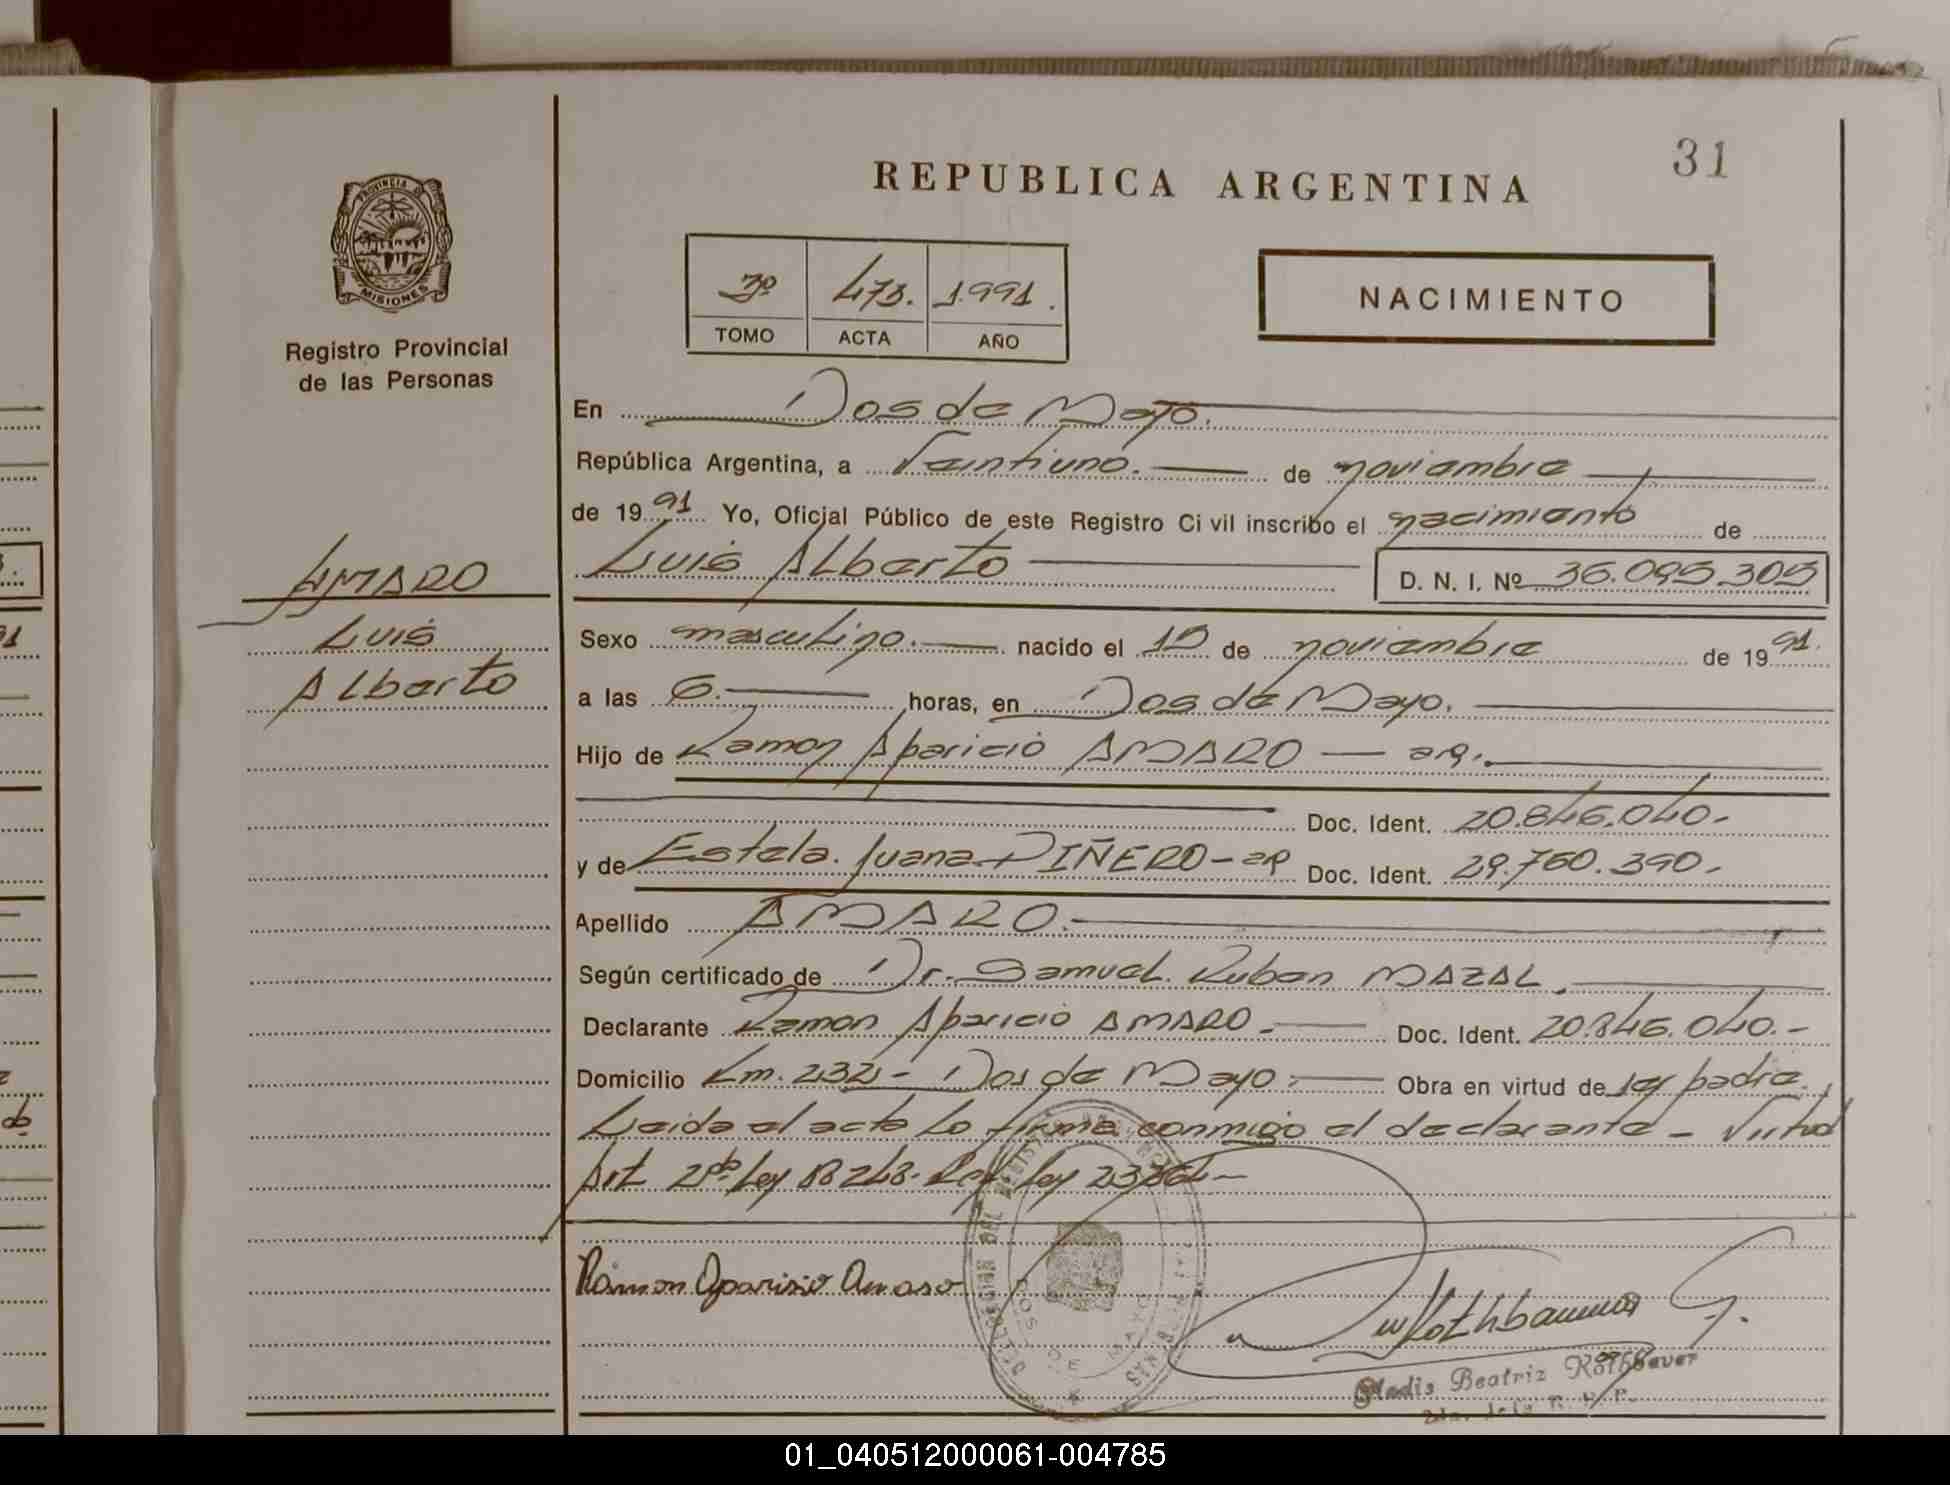 31
REPUBLICA ARGENTINA
PROVINCIA DE
MISIONES
Registro Provincial
de las Personas
3º 473. 1.991.
TOMO ACTA AÑO
NACIMIENTO
En Dos de Mayo.
República Argentina, a Veintiuno. de noviembre
de 1991 Yo, Oficial Público de este Registro Civil inscribo el nacimiento de
Luis Alberto D. N. I. Nº 36.095.305
AMARO
Luis
Alberto
Sexo masculino. nacido el 15 de noviembre de 1991.
a las 6. horas, en Dos de Mayo.
Hijo de Ramon Aparicio AMARO — arg.
Doc. Ident. 20.846.040.-
y de Estela Juana PIÑERO - ar Doc. Ident. 29.760.390.-
Apellido AMARO.
Según certificado de Dr. Samuel Ruben MAZAL.
Declarante Ramon Aparicio AMARO. Doc. Ident. 20.846.040.-
Domicilio Km. 232 - Dos de Mayo. Obra en virtud de ser padre.
Leida el acta la firma conmigo el declarante - Virtud
Art 2do Ley 18248. Ref. Ley 23264-
Ramon Aparisio Amaro
DELEGACION DEL
DOS DE MAYO
Gladis Beatriz Rothbauer
01_040512000061-004785